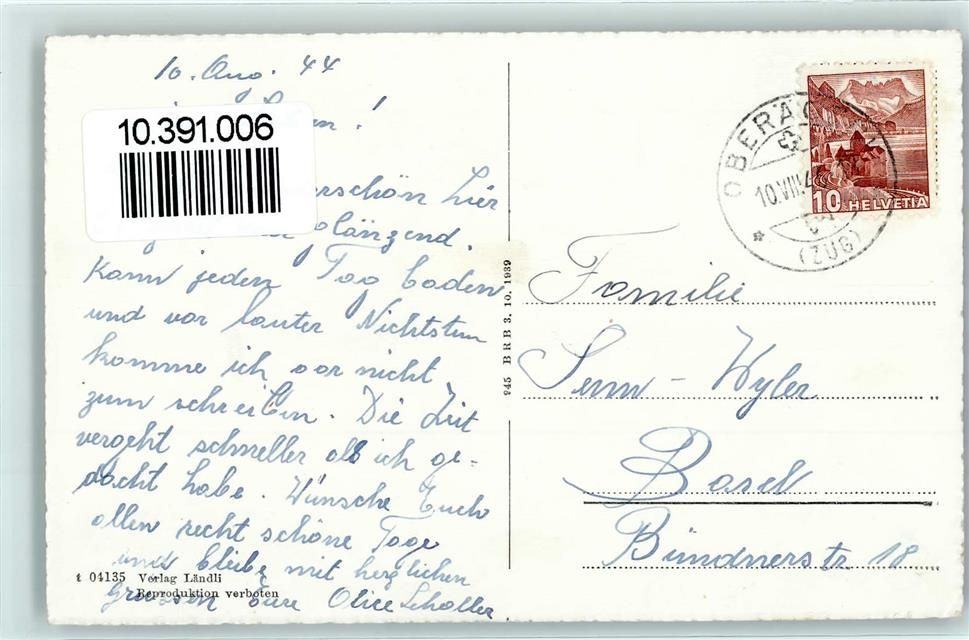 10. Aug. 44
10.391.006
hier
glänzend.
Kann jeden Tag baden
und vor lauter Nichtstun
komme ich gar nicht
zum schreiben. Die Zeit
vergeht schneller als ich ge-
dacht habe. Wünsche Euch
allen recht schöne Tage
und bleibe mit herzlichen
Grüssen Eure Alice Schaller
t 04135 Verlag Ländli
Reproduktion verboten
945 BRB 3. 10. 1939
10.VIII.4
(ZUG)
10 HELVETIA
Familie
Senn-Wyler
Basel
Bündnerstr 18